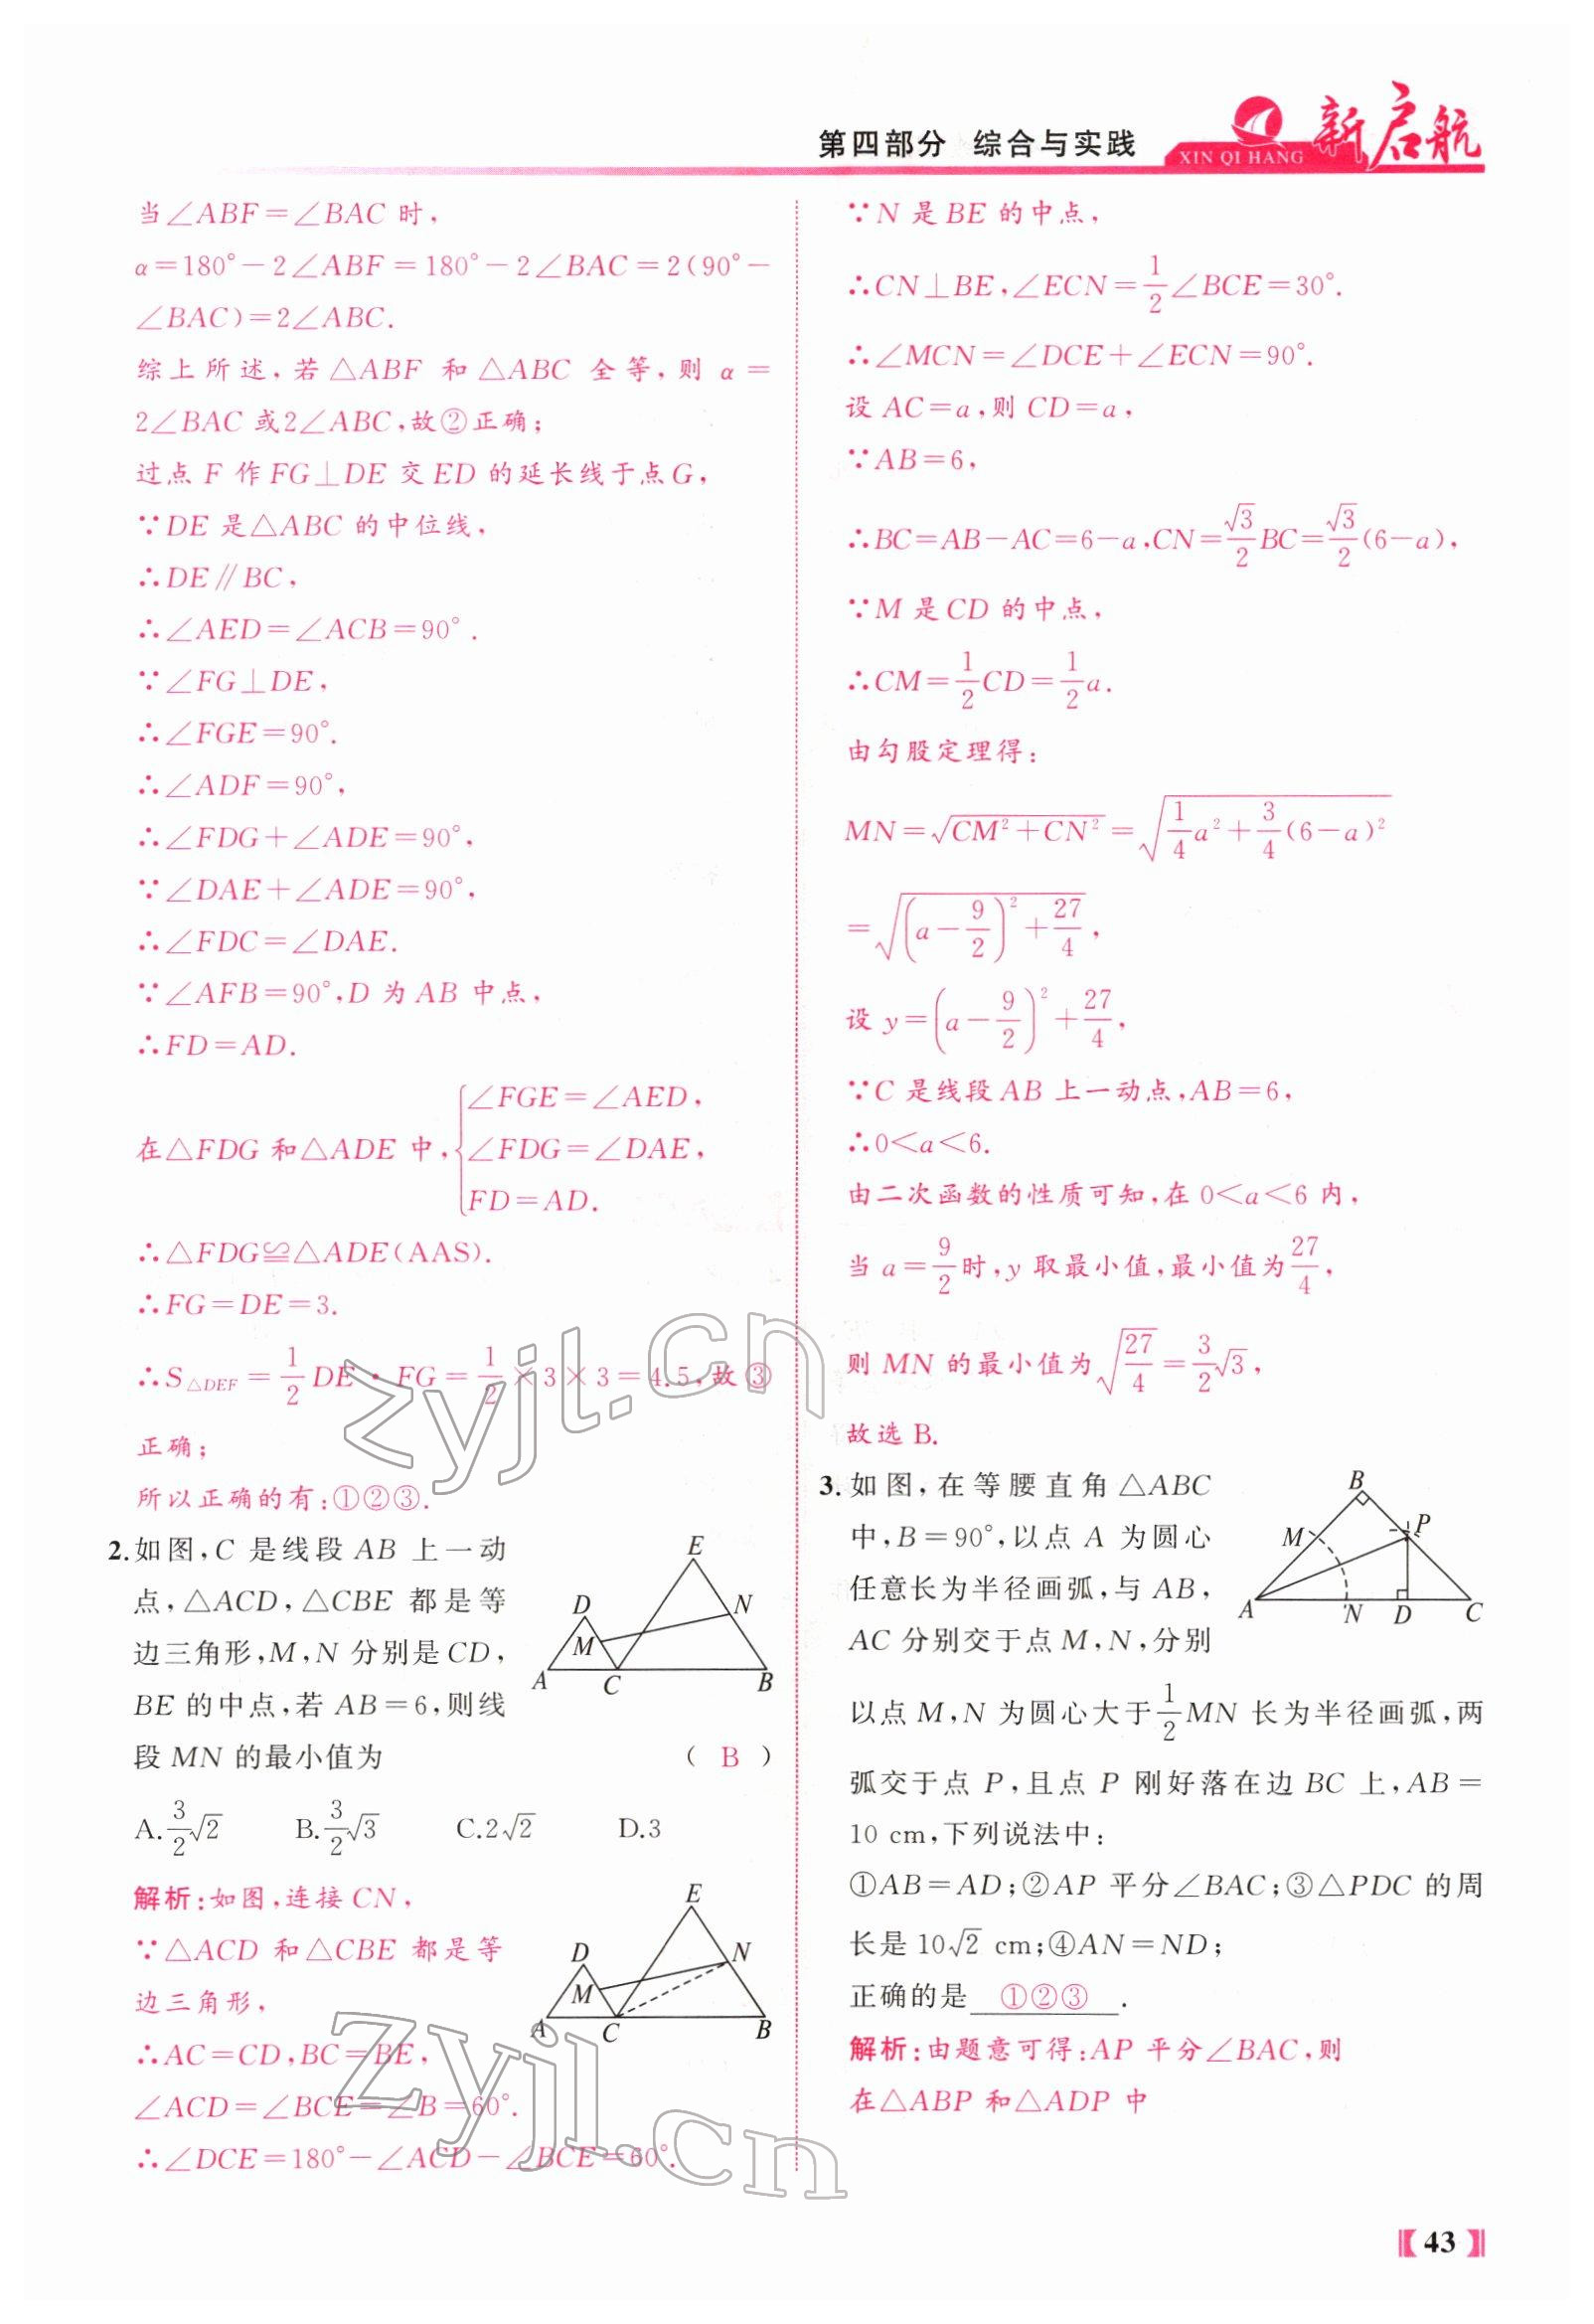 第四部分 综合与实践
XIN QI HANG 新启航
当∠ABF=∠BAC 时,
α=180°-2∠ABF=180°-2∠BAC=2(90°-
∠BAC)=2∠ABC.
综上所述,若△ABF 和△ABC 全等,则 α=
2∠BAC 或2∠ABC,故②正确;
过点 F 作 FG⊥DE 交 ED 的延长线于点G,
∵DE 是△ABC 的中位线,
∴DE∥BC,
∴∠AED=∠ACB=90°.
∵∠FG⊥DE,
∴∠FGE=90°.
∴∠ADF=90°,
∴∠FDG+∠ADE=90°,
∵∠DAE+∠ADE=90°,
∴∠FDC=∠DAE.
∵∠AFB=90°,D 为 AB 中点,
∴FD=AD.
在△FDG 和△ADE 中,{∠FGE=∠AED,
∠FDG=∠DAE,
FD=AD.
∴△FDG≌△ADE(AAS).
∴FG=DE=3.
∴S△DEF=1/2 DE·FG=1/2×3×3=4.5,故③
正确;
所以正确的有:①②③.
2.如图,C 是线段 AB 上一动
点,△ACD,△CBE 都是等
边三角形,M,N 分别是CD,
BE 的中点,若 AB=6,则线
段 MN 的最小值为 ( B )
A.3/2√2 B.3/2√3 C.2√2 D.3
E
D
N
M
A
C
B
解析:如图,连接CN,
∵△ACD 和△CBE 都是等
边三角形,
∴AC=CD,BC=BE,
∠ACD=∠BCE=∠B=60°.
∴∠DCE=180°-∠ACD-∠BCE=60°.
E
D
N
M
A
C
B
∵N 是 BE 的中点,
∴CN⊥BE,∠ECN=1/2∠BCE=30°.
∴∠MCN=∠DCE+∠ECN=90°.
设 AC=a,则 CD=a,
∵AB=6,
∴BC=AB-AC=6-a,CN=√3/2 BC=√3/2(6-a),
∵M 是 CD 的中点,
∴CM=1/2 CD=1/2 a.
由勾股定理得:
MN=√(CM²+CN²)=√(1/4 a²+3/4(6-a)²)
=√((a-9/2)²+27/4),
设 y=(a-9/2)²+27/4,
∵C 是线段 AB 上一动点,AB=6,
∴0<a<6.
由二次函数的性质可知,在 0<a<6 内,
当 a=9/2时,y 取最小值,最小值为27/4,
则 MN 的最小值为√(27/4)=3/2√3,
故选 B.
3.如图,在等腰直角△ABC
中,B=90°,以点 A 为圆心
任意长为半径画弧,与 AB,
AC 分别交于点 M,N,分别
以点 M,N 为圆心大于1/2 MN 长为半径画弧,两
弧交于点 P,且点 P 刚好落在边 BC 上,AB=
10 cm,下列说法中:
①AB=AD;②AP 平分∠BAC;③△PDC 的周
长是 10√2 cm;④AN=ND;
正确的是 ①②③ .
B
P
M
A
N
D
C
解析:由题意可得:AP 平分∠BAC,则
在△ABP 和△ADP 中
zyjl.cn
zyjl.cn
43